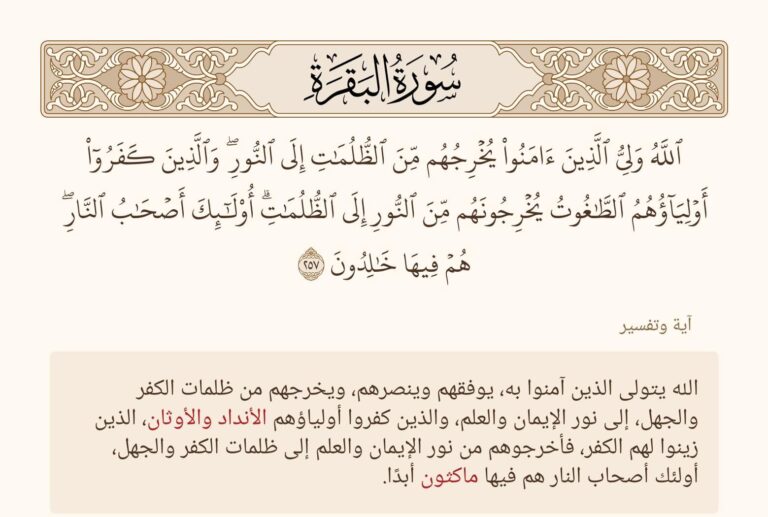 سُورَةُ البَقَرَةِ
ٱللَّهُ وَلِيُّ ٱلَّذِينَ ءَامَنُوا۟ يُخْرِجُهُم مِّنَ ٱلظُّلُمَـٰتِ إِلَى ٱلنُّورِ ۖ وَٱلَّذِينَ كَفَرُوٓا۟
أَوْلِيَآؤُهُمُ ٱلطَّـٰغُوتُ يُخْرِجُونَهُم مِّنَ ٱلنُّورِ إِلَى ٱلظُّلُمَـٰتِ ۗ أُو۟لَـٰٓئِكَ أَصْحَـٰبُ ٱلنَّارِ ۖ
هُمْ فِيهَا خَـٰلِدُونَ ٢٥٧
آية وتفسير
الله يتولى الذين آمنوا به، يوفقهم وينصرهم، ويخرجهم من ظلمات الكفر
والجهل، إلى نور الإيمان والعلم، والذين كفروا أولياؤهم الأنداد والأوثان، الذين
زينوا لهم الكفر، فأخرجوهم من نور الإيمان والعلم إلى ظلمات الكفر والجهل،
أولئك أصحاب النار هم فيها ماكثون أبدًا.